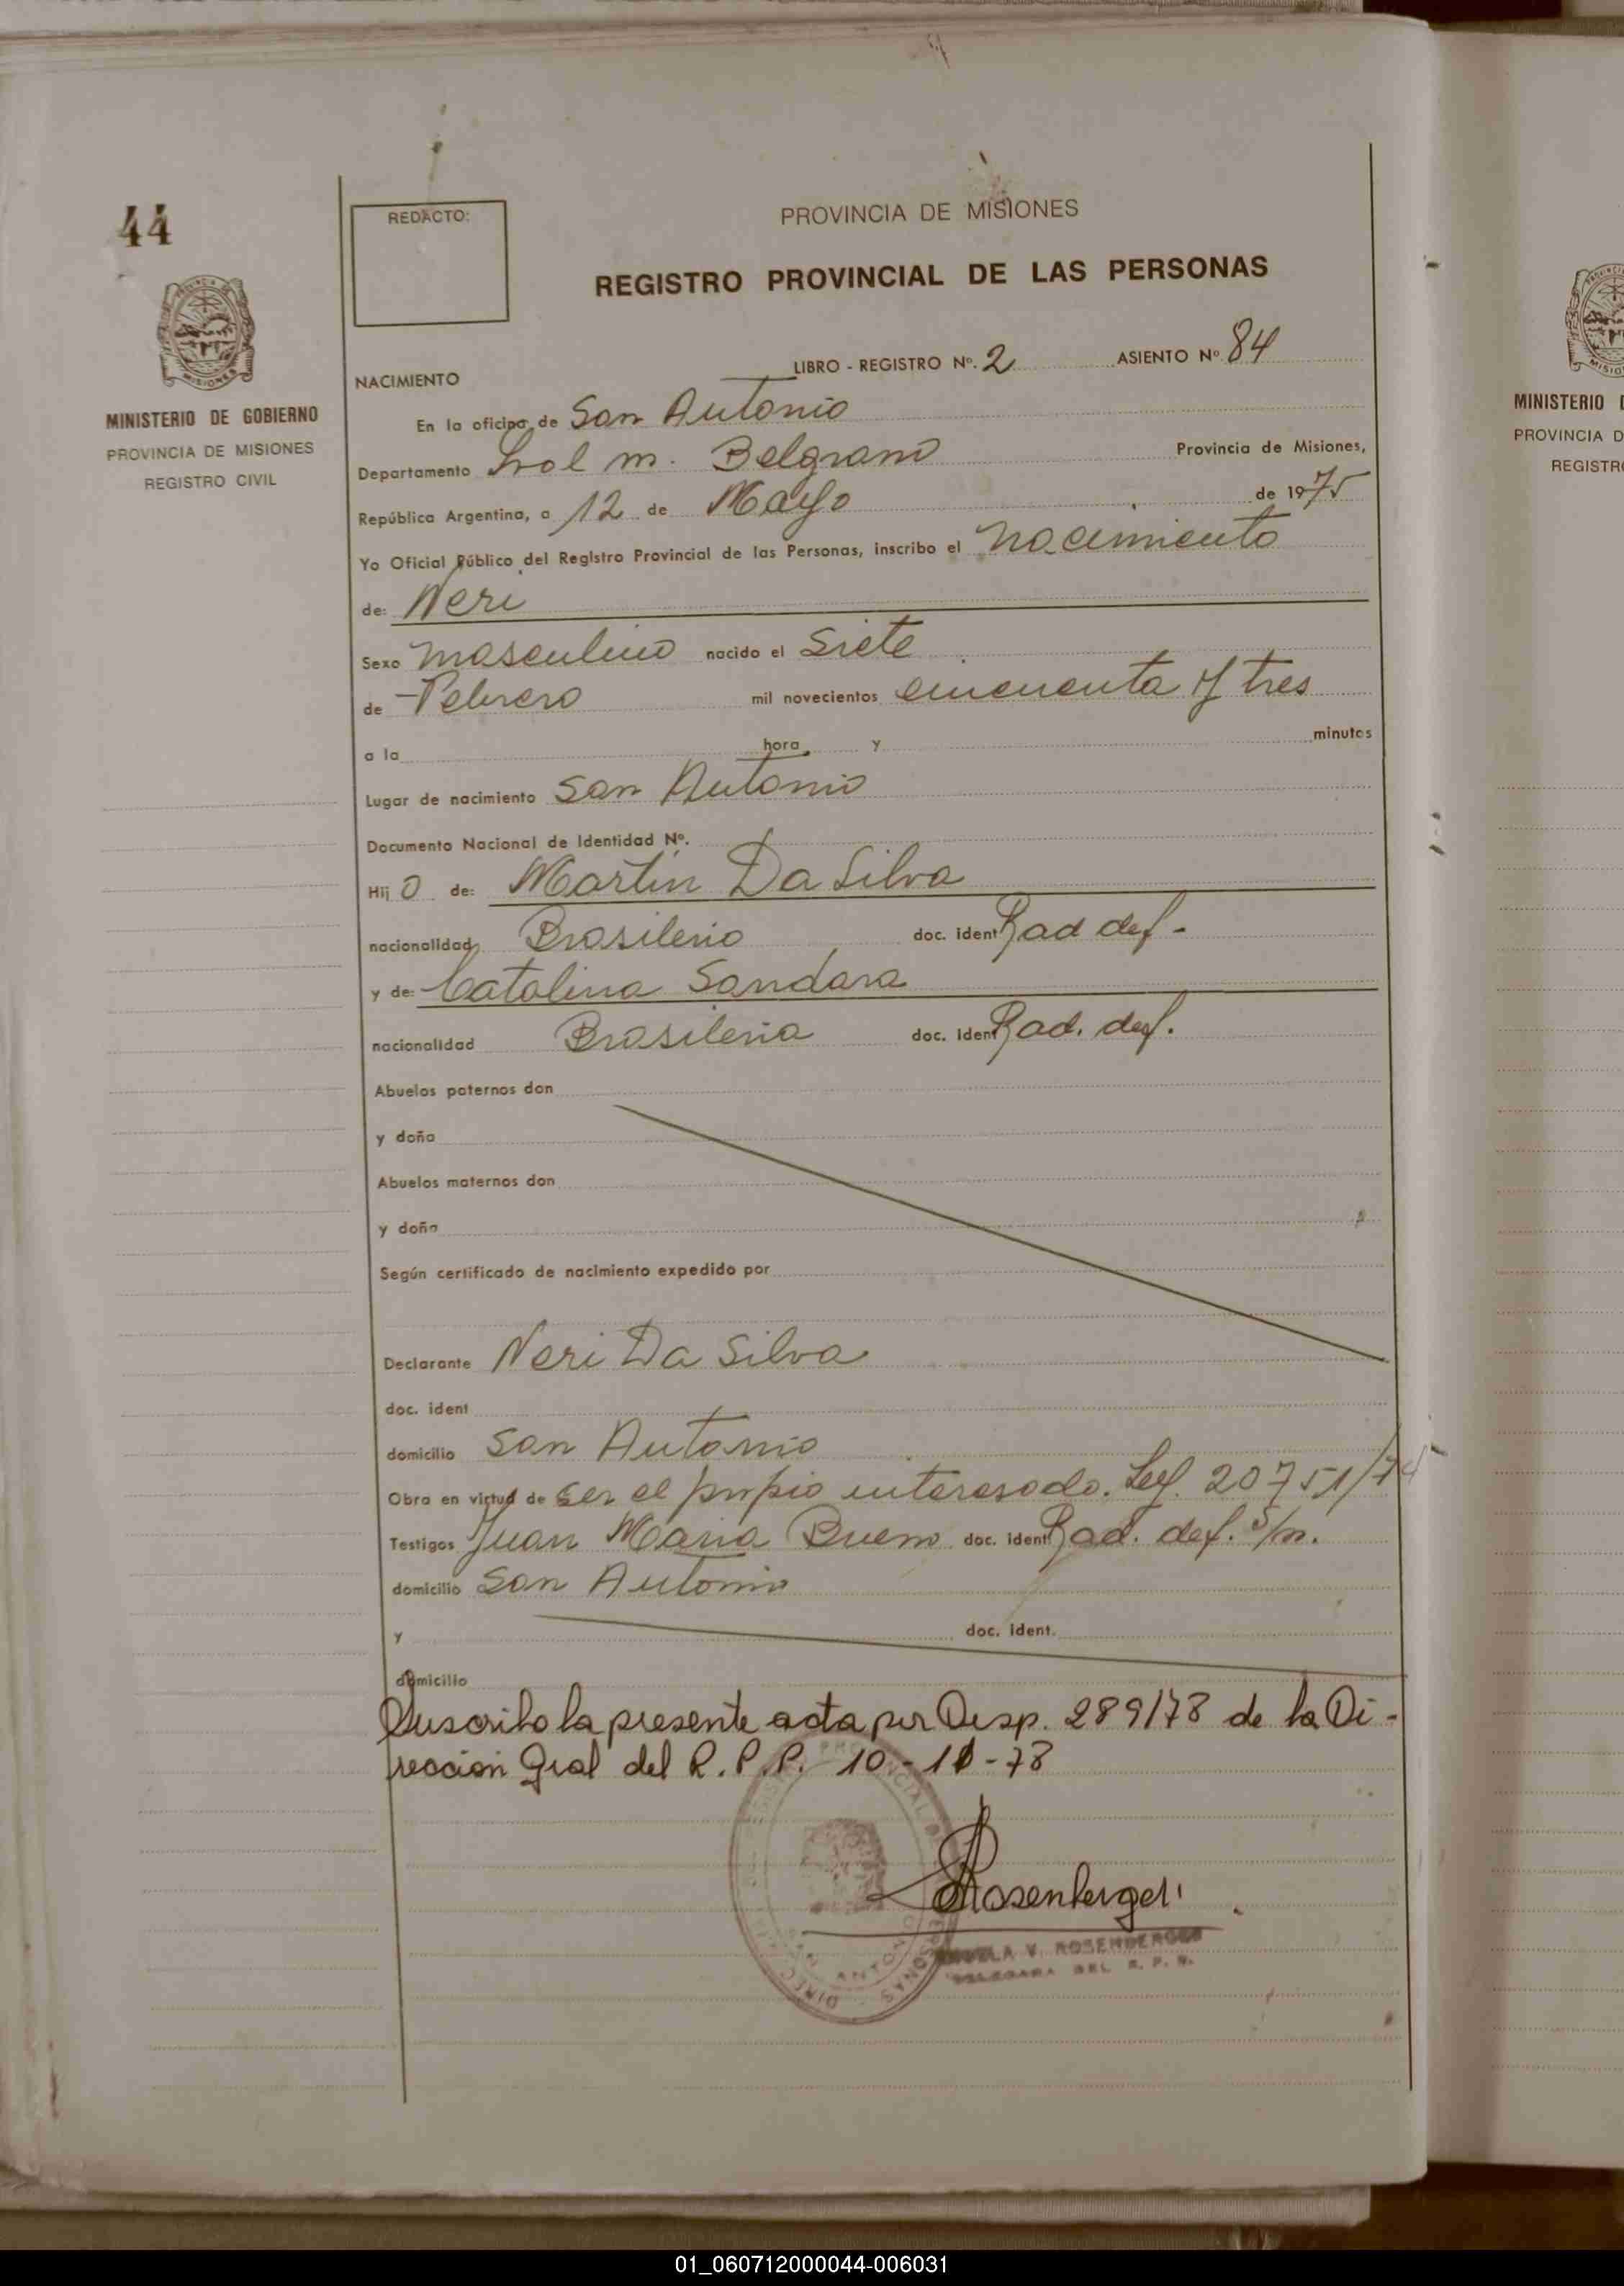 44
REDACTO:
PROVINCIA DE MISIONES
REGISTRO PROVINCIAL DE LAS PERSONAS
MINISTERIO DE GOBIERNO
PROVINCIA DE MISIONES
REGISTRO CIVIL
LIBRO - REGISTRO Nº. 2 ASIENTO Nº. 84
NACIMIENTO
En la oficina de San Antonio
Departamento Gral M. Belgrano Provincia de Misiones,
República Argentina, a 12 de Mayo de 1975
Yo Oficial Público del Registro Provincial de las Personas, inscribo el nacimiento
de: Neri
Sexo masculino nacido el siete
de Febrero mil novecientos cincuenta y tres
a la hora y minutos
Lugar de nacimiento San Antonio
Documento Nacional de Identidad Nº.
Hij o de: Martín Da Silva
nacionalidad Brasilerio doc. ident Rad def-
y de: Catalina Sandara
nacionalidad Brasileria doc. ident Rad. def.
Abuelos paternos don
y doña
Abuelos maternos don
y doña
Según certificado de nacimiento expedido por
Declarante Neri Da Silva
doc. ident
domicilio San Antonio
Obra en virtud de ser el propio interesado. Ley. 20751/74
Testigos Juan Maria Bueno doc. ident Rad. def. s/n.
domicilio San Antonio
y doc. ident.
domicilio
Suscribo la presente acta por Disp. 289/78 de la Di-
reccion Gral del R.P.P. 10-10-78
Rosenberger
V. ROSENBERGER
DELEGADA DEL R. P. P.
MINISTERIO
PROVINCIA D
REGISTR
01_060712000044-006031